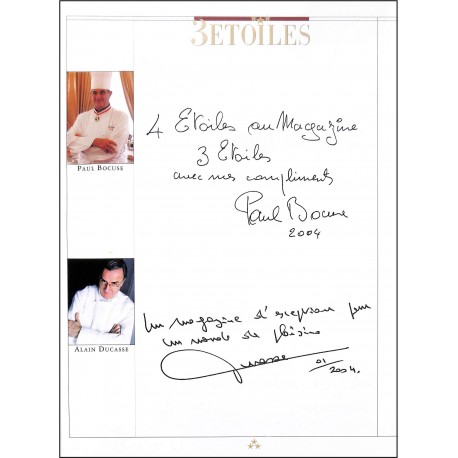 3ETOILES
PAUL BOCUSE
4 Etoiles au Magazine
3 Etoiles
avec mes compliments
Paul Bocuse
2004
ALAIN DUCASSE
Un magazine d'exception pour
un monde de plaisirs
Ducasse
01/2004.